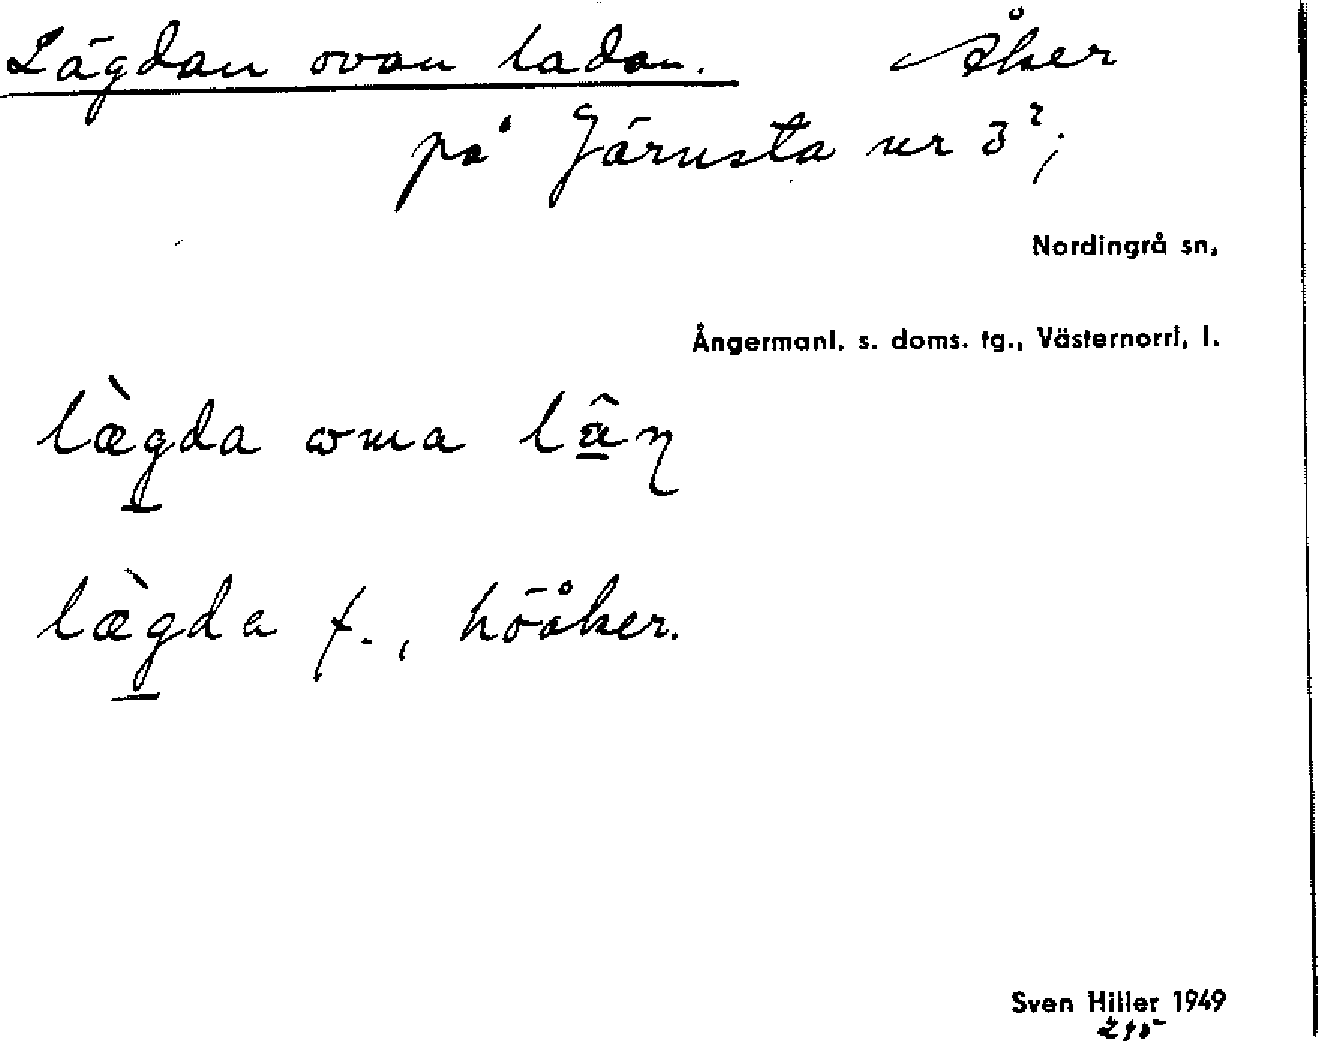 Lägdan ovan ladan. Åker
på Järnsta nr 3²;
Nordingrå sn,
Ångermanl. s. doms. tg., Västernorrl. l.
læ̀gda oma lân
læ̀gda f., höåker.
Sven Hiller 1949